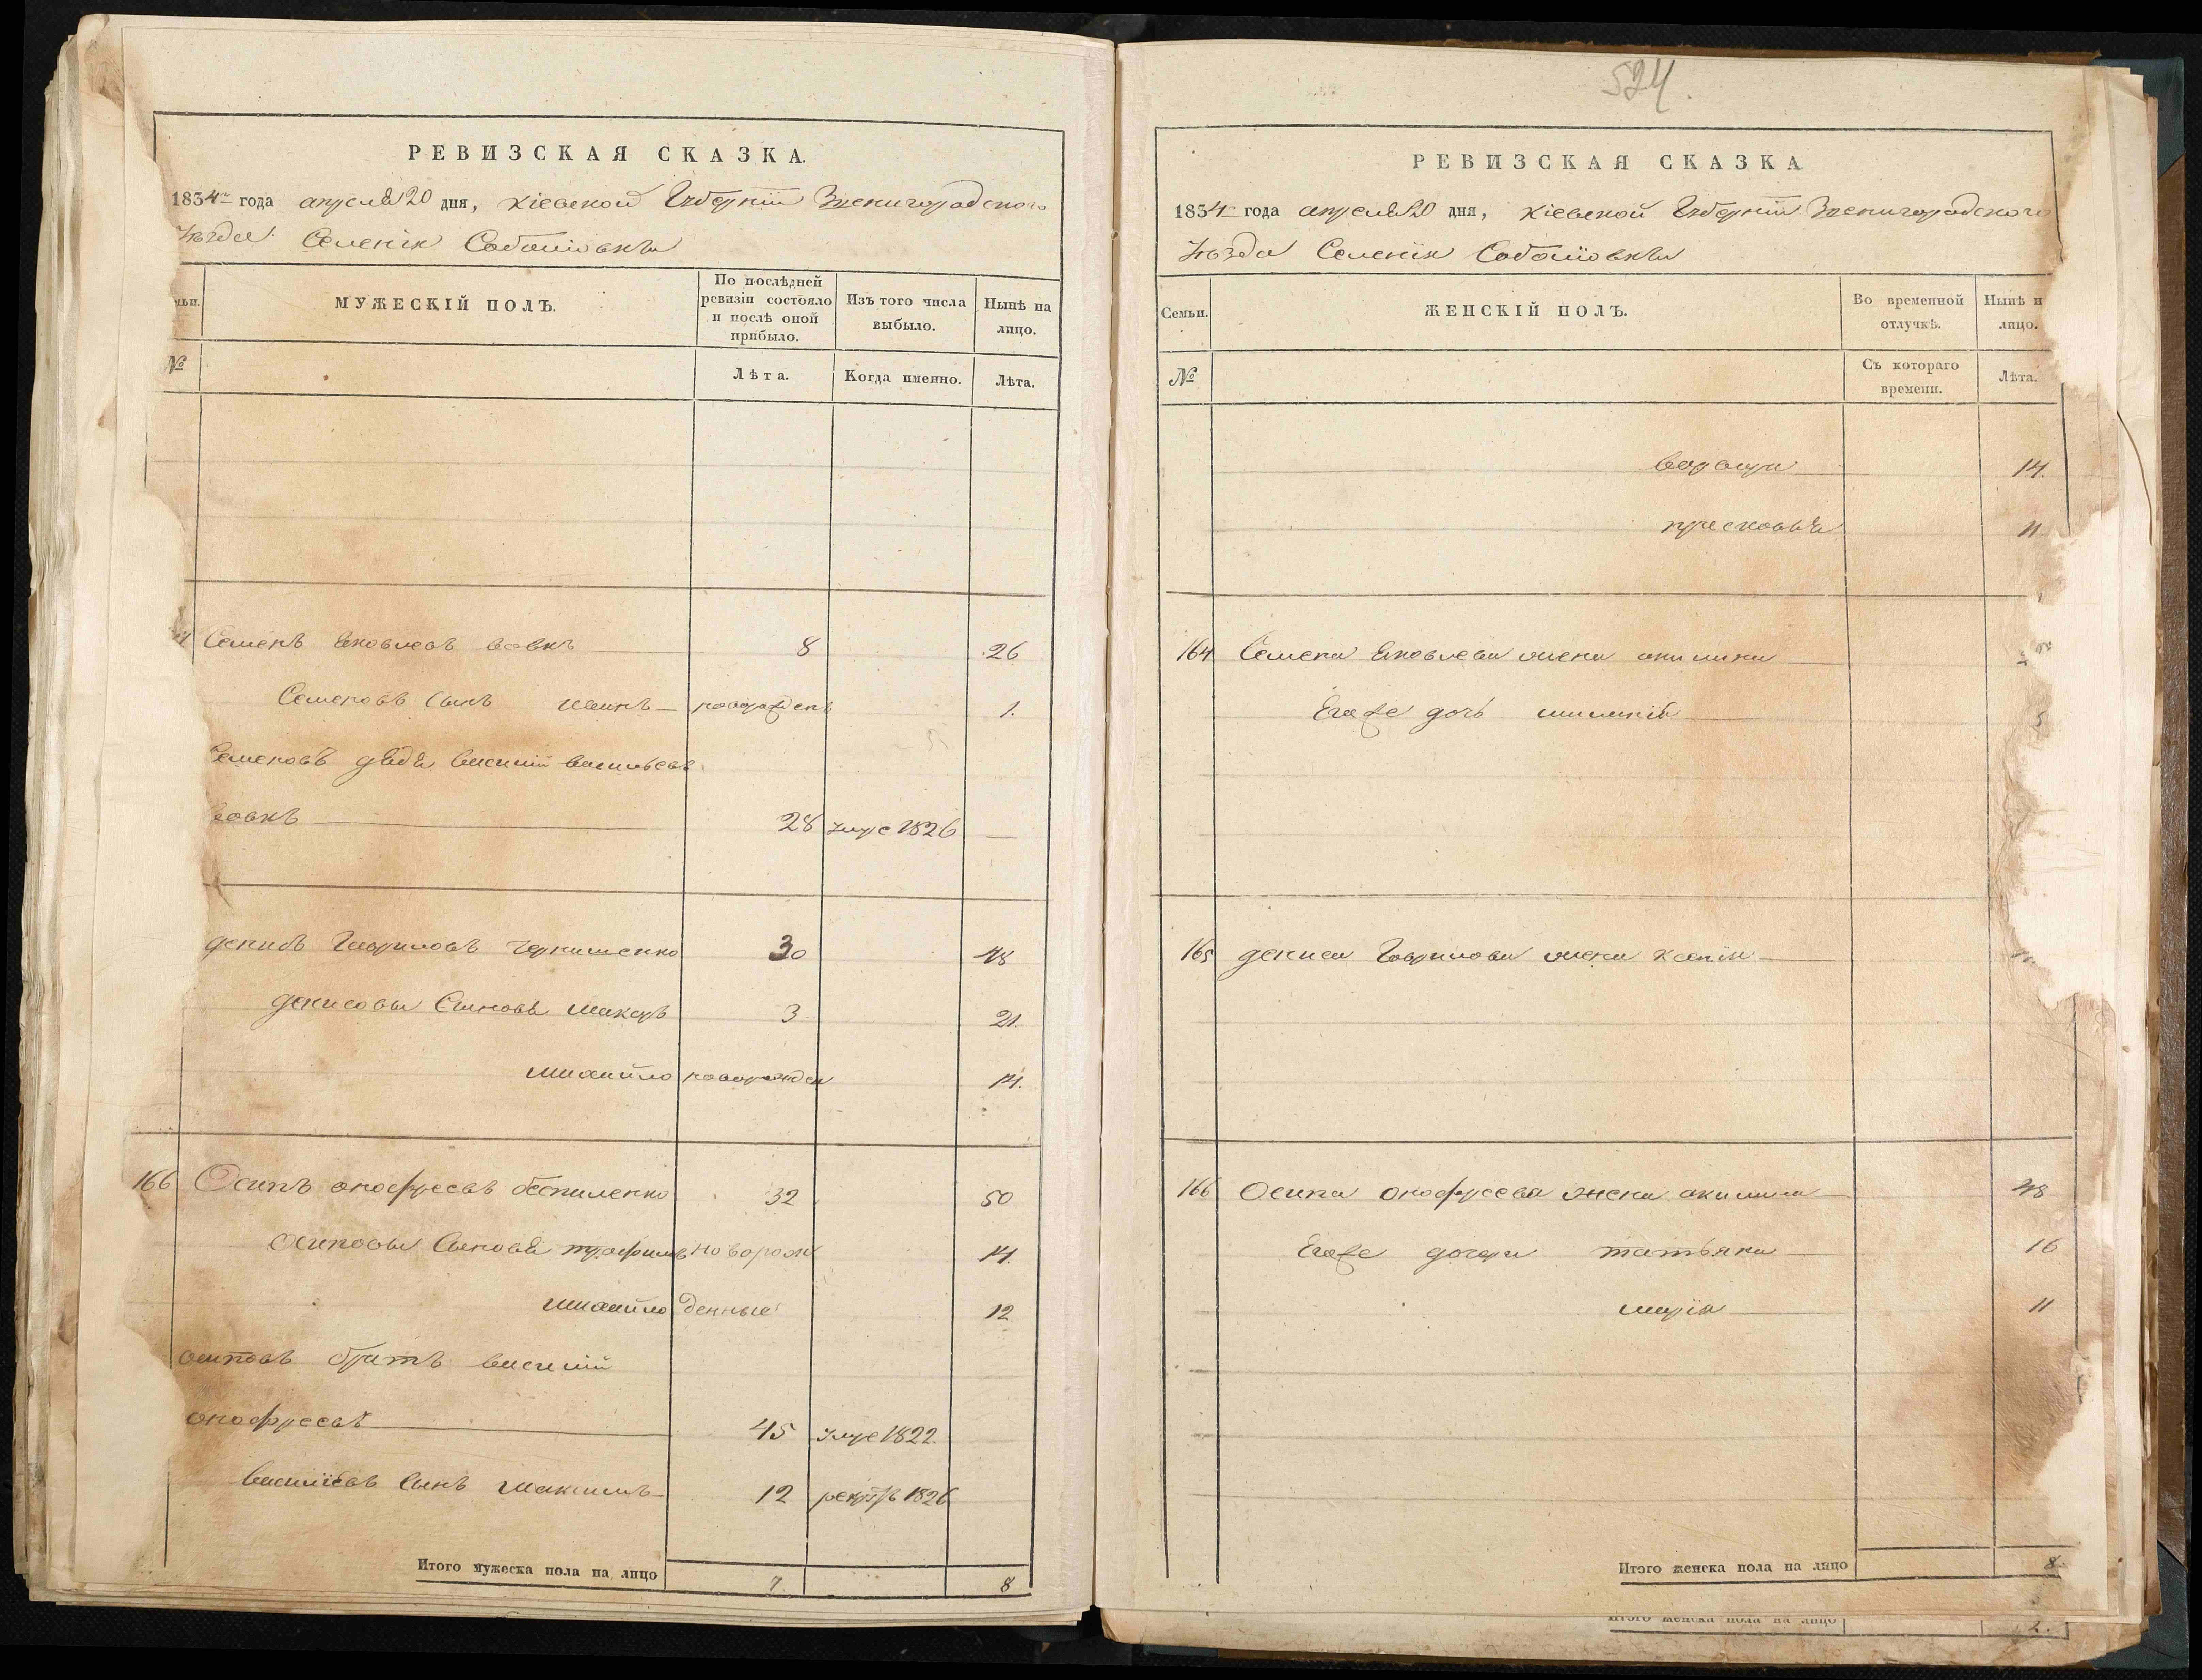 РЕВИЗСКАЯ СКАЗКА.
1834го года апреля 20 дня, Кіевской Губерніи Звенигородского
уѣзда Селенія
МУЖЕСКІЙ ПОЛЪ.
По послѣдней ревизіи состояло и послѣ оной прибыло.
Изъ того числа выбыло.
Нынѣ на лицо.
№
Лѣта.
Когда именно.
Лѣта.
Семенъ Яковлевъ Вовкъ 8 26
Семеновъ Сынъ новорожденъ 1.
Семеновъ дядя Василій Васильевъ
Вовкъ 28 умре 1826 —
Денисъ Гавриловъ 30 48
Денисовы Сыновья 3 21.
Михайло новорожден 14.
166 Осипъ Онофреевъ 32 50
Осиповы Сыновья Трофимъ новорож 14.
Михайло денные 12
Осиповъ братъ Василій
Онофреевъ 45 умре 1822.
Васильевъ Сынъ Максимъ 12 рекрутъ 1826
Итого мужеска пола на лицо 7 8
524.
РЕВИЗСКАЯ СКАЗКА
1834го года апреля 20 дня, Кіевской Губерніи Звенигородского
уѣзда Селенія
Семьи.
ЖЕНСКІЙ ПОЛЪ.
Во временной отлучкѣ.
Нынѣ н лицо.
№
Съ котораго времени.
Лѣта.
Варвара 14.
Прасковья 11
164 Семена Яковлева жена Акилина
Его же дочь 5
165 Дениса Гаврилова жена Ксенія
166 Осипа Онофреева жена Акилина 48
Его же дочери Татьяна 16
Марія 11
Итого женска пола на лицо 8.
Итого женска пола на лицо 2.